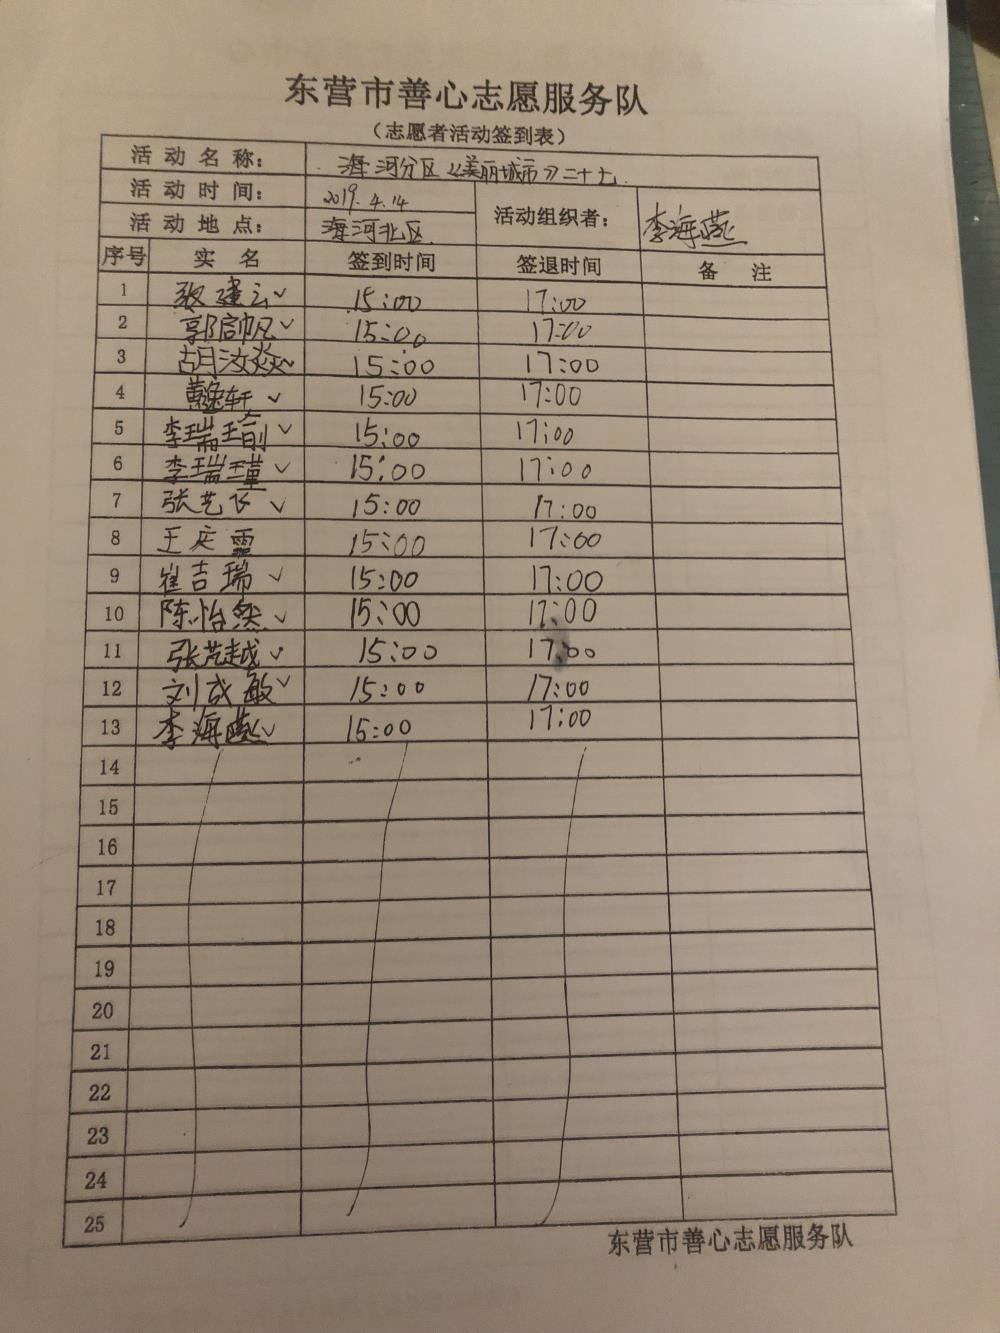 东营市善心志愿服务队
（志愿者活动签到表）
活动名称： 海河分区《美丽城市》二十七
活动时间： 2019.4.14 活动组织者： 李海燕
活动地点： 海河北区
序号 实名 签到时间 签退时间 备注
1 建云✓ 15:00 17:00
2 郭帅凡✓ 15:00 17:00
3 胡汶焱✓ 15:00 17:00
4 轩✓ 15:00 17:00
5 李瑞瑜✓ 15:00 17:00
6 李瑞瑾✓ 15:00 17:00
7 张艺飞✓ 15:00 17:00
8 王庆霏 15:00 17:00
9 崔吉瑞✓ 15:00 17:00
10 陈怡然✓ 15:00 17:00
11 张艺越✓ 15:00 17:00
12 刘成敏✓ 15:00 17:00
13 李海燕✓ 15:00 17:00
14
15
16
17
18
19
20
21
22
23
24
25
东营市善心志愿服务队